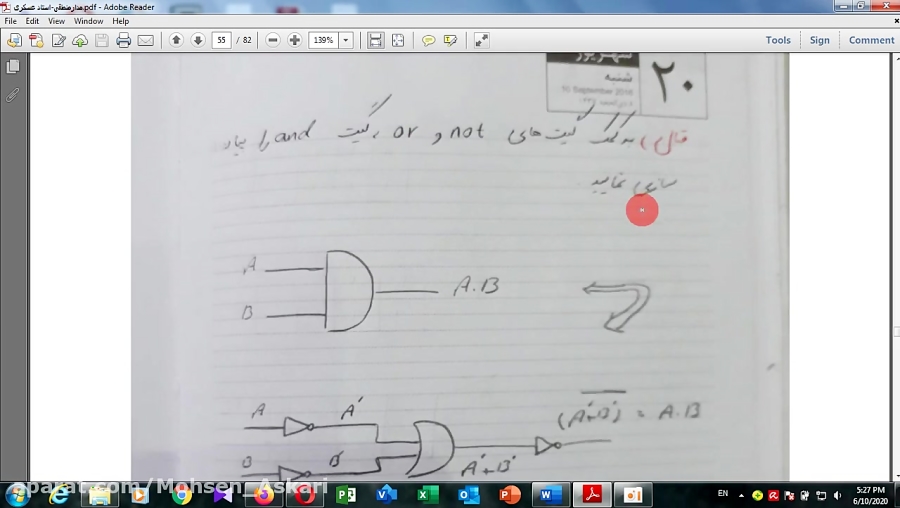 مدارمنطقی-استاد عسکری.pdf - Adobe Reader
File Edit View Window Help
55 / 82 139% Tools Sign Comment
۲۰
شهریور
شنبه
10 September 2016
مثال) به کمک گیت های not و or ، گیت and را پیاده
سازی نمایید
A
B
A.B
A A'
(A'+B') = A.B
B B'
A'+B'
aparat.com/Mohsen_Askari
EN 5:27 PM
6/10/2020